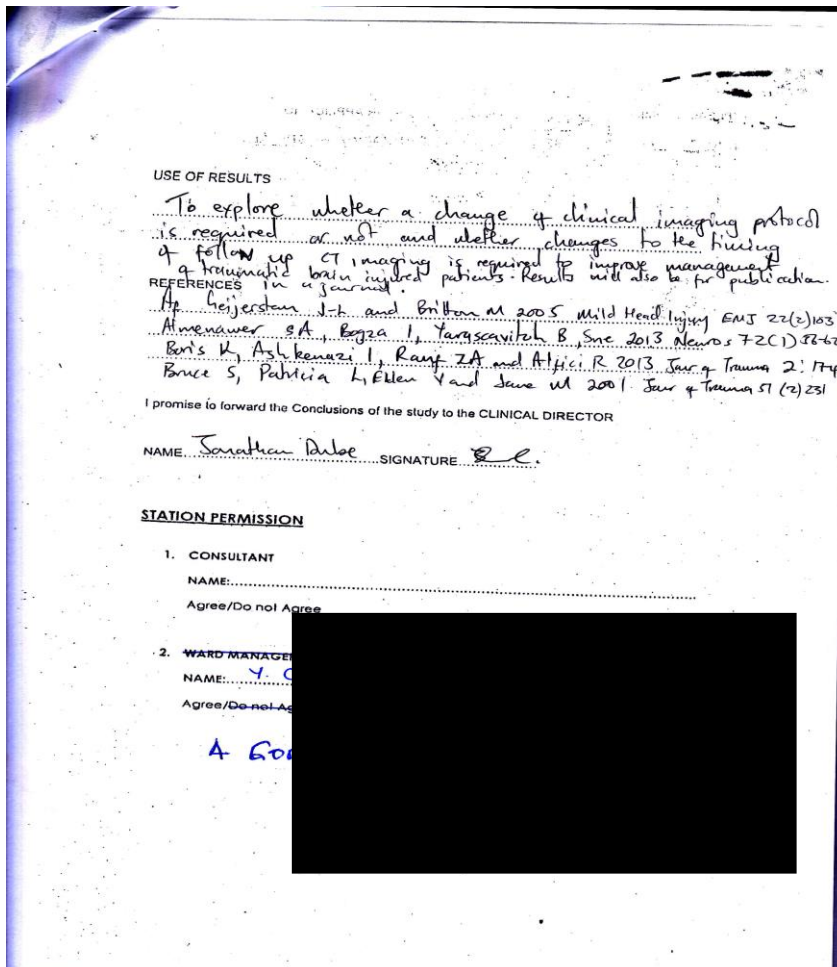 USE OF RESULTS
To explore whether a change of clinical imaging protocol
is required or not and whether changes to the timing
of follow up CT imaging is required to improve management
of traumatic brain injured patients. Results will also be for publication.
REFERENCES in a journal.
Af Geijerstam J-L and Britton M 2005 Mild Head Injury EMJ 22(2)103
Almenawer SA, Bogza I, Yarascavitch B, Sne 2013 Neuros 72(1)
Boris K, Ashkenazi I, R and Alfici R 2013 Jour of Trauma 2:174
Bruce S, Patricia L, Ellen V and Jane M 2001. Jour of Trauma 51 (2) 231
I promise to forward the Conclusions of the study to the CLINICAL DIRECTOR
NAME Jonathan Dube SIGNATURE
STATION PERMISSION
1. CONSULTANT
NAME:
Agree/Do not Agree
2. WARD MANAGE
NAME: Y.
Agree/Do not Ag
A Goo